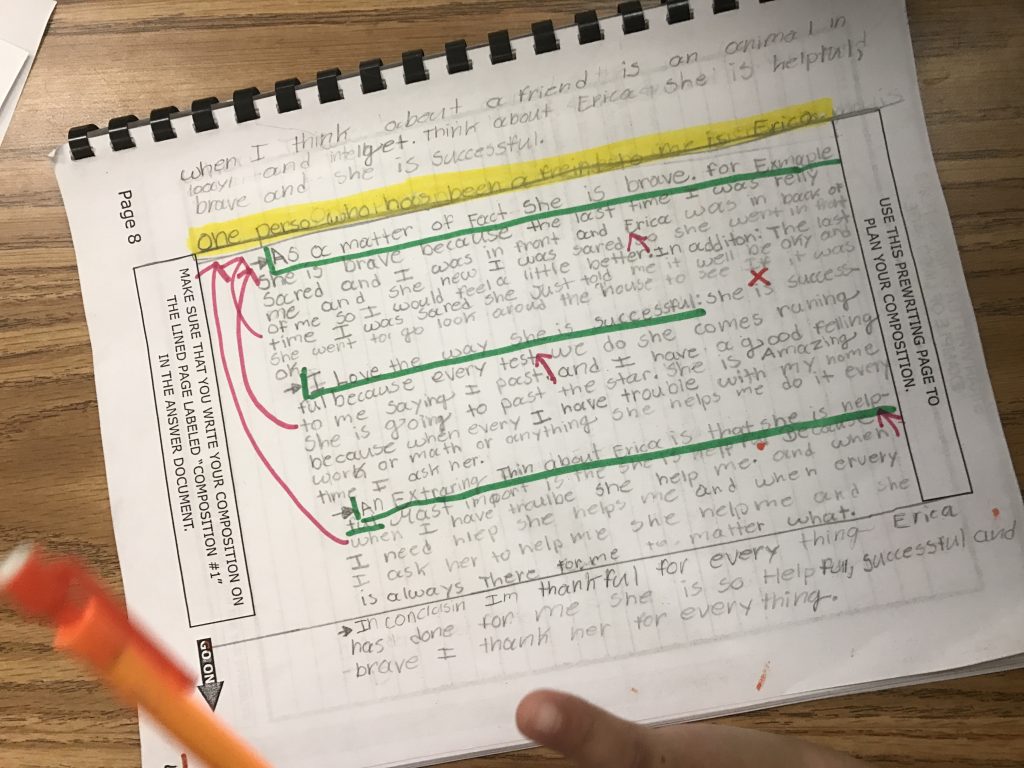 when I think about a friend is an animal in
loayl and intelget. Think about Erica she is helpfull,
brave and she is successful.
one person who has been a freind to me is Erica.
As a matter of Fact she is brave. for Exmaple
she is brave because the last time I was relly
sacred and I was in front and Erica was in back of
me and she new I was sared so she went in front
of me so I would feel a little better. In additon: The last
time I was sared she just told me it well be oky and
she went to go look aroud the house to see if it was
ok.
I Love the way she is successful: she is success-
ful because every test we do she comes runing
to me saying I past and I have a good felling
she is going to past the star. she is Amazing
because when every I have trouble with my home
work or math or anything she helps me do it every
time I ask her.
An Extraring Thin about Erica is that she is help-
Mast import is the she is because
when I have traulbe she help me. and when
I need hlep she helps me and when ervery
I ask her to help me she help me and she
is always There for me to matter what.
In conclaisin Im thankful for every thing Erica
has done for me she is so Helpfull, successful and
brave I thank her for everything.
Page 8
USE THIS PREWRITING PAGE TO
PLAN YOUR COMPOSITION.
MAKE SURE THAT YOU WRITE YOUR COMPOSITION ON
THE LINED PAGE LABELED "COMPOSITION #1"
IN THE ANSWER DOCUMENT.
GO ON